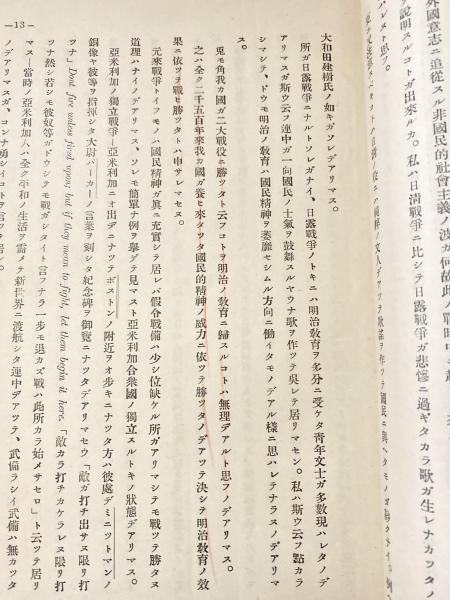 外國意志ニ追從スル非國民的社會主義ノ波ガ何故此ノ戰時中ニ
説明スルコトガ出來ルカ。私ハ日清戰爭ニ比シテ日露戰爭ガ悲慘ニ過ギタカラ歌ガ生レナカツタ
大和田建樹氏ノ如キガソレデアリマス。
所ガ日露戰爭ニナルトソレガナイ、日露戰爭ノトキニハ明治敎育ヲ多分ニ受ケタ靑年文士ガ多數現ハレタノデ
アリマスガ斯ウ云フ連中ガ一向國民ノ士氣ヲ鼓舞スルヤウナ歌ヲ作ツテ吳レテ居リマセン。私ハ斯ウ云フ點カラ
シマシテ、ドウモ明治ノ敎育ハ國民精神ヲ萎靡セシムル方向ニ働イタモノデアル樣ニ思ハレテナラヌノデアリマ
ス。
兎モ角我ガ國ガ二大戰役ニ勝ツタト云フコトヲ明治ノ敎育ニ歸スルコトハ無理デアルト思フノデアリマス。
之ハ全ク二千五百年來我ガ國ガ養ヒ來タツタ國民的精神ノ威力ニ依ツテ勝ツタノデアツテ決シテ明治敎育ノ效
果ニ依ツテ戰ヒ勝ツタトハ申サレマセヌ。
元來戰爭トイフモノハ國民精神ガ眞ニ充實シテ居レバ假令戰備ハ少シ位缺ケル所ガアリマシテモ戰ツテ勝タヌ
道理ハナイノデアリマス、ソレモ簡單ナ例ヲ擧ゲテ見マスト亞米利加合衆國ノ獨立スルトキノ狀態デアリマス。
亞米利加ノ獨立戰爭―亞米利加ニオ出デニナツテボストンノ附近ヲオ歩キニナツタ方ハ彼處デミニツトマンノ
銅像ヤ彼等ヲ指揮シタ大尉パーカーノ言葉ヲ刻シタ紀念碑ヲ御覽ニナツタデアリマセウ「敵ガ打チ出サヌ限リ打
ツナ」Dont fire unless fired upon; but if they mean to fight, let them begin it here.「敵カラ打チカケラレヌ限リ打
ツナ然シ若シモ彼奴等ガドウシテモ戰ガシタイト言フナラ一歩モ退カズ戰ハ此所カラ始メサセロ」ト云ツテ居リ
マス―當時ノ亞米利加人ハ全ク平和ノ生活ヲ需メテ新世界ニ渡航シタ連中デアツテ、武備ラシイ武備ハ無カツタ
ノデアリマスガ、コンナ勇シイコトヲ言ツテ居
—13—